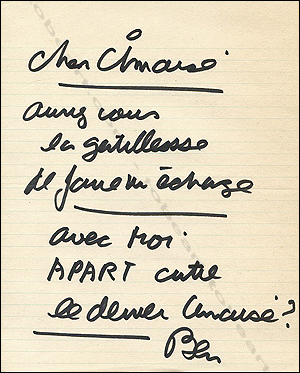 Cher Cimaise
aurez vous
la gentillesse
de faire un échange
avec Moi
APART contre
le dernier Cimaise?
Ben